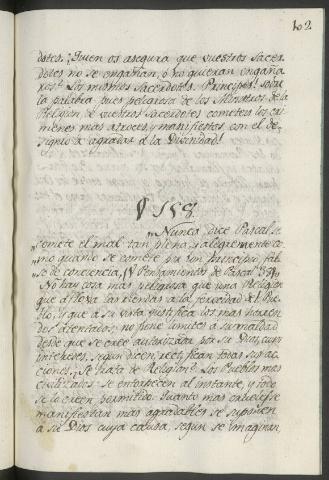 102
dotes. ¿Quien os asegura que vuestros Sacer-
dotes no se engañan, ó no quieran engaña-
ros? Los mismos Sacerdotes. Principes! sobre
la palabra pues peligrosa de los Ministros de la
Religion, de vuestros Sacerdotes cometeis los cri-
menes mas atroces, y manifiestos con el de-
signio de agradar á la Divinidad!
§ 158.
„Nunca, dice Pascal, se
„comete el mal tan plena, y alegremente co-
„mo quando se comete por un principio fal-
„so de conciencia. (V Pensamientos de Pascal
No hay cosa mas peligrosa que una Religion
que afloxa las riendas á la ferocidad del Pue-
blo, y que á su vista justifica los mas
atentados; no pone limites á su maldad
desde que se cree autorizada por su Dios, cuyos
intereses, segun dicen, rectifican todas sus ac-
ciones. ¿Se trata de Religion? Los Pueblos mas
civilizados se entorpecen al instante, y todo
se lo creen permitido. Quanto mas crueles se
manifiestan mas agradables se suponen
á su Dios cuya causa, segun se imaginan